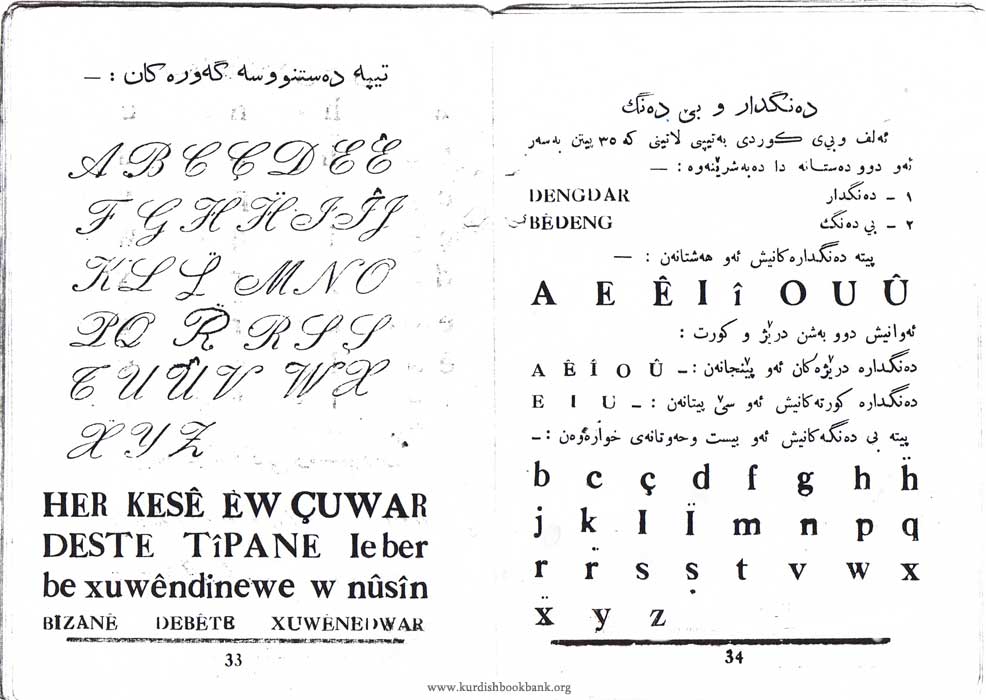 تیپه دەستنووسه گەورەكان : —
A B C Ç D E Ê
F G H Ḧ I Î J
K L L̈ M N O
P Q R̈ R S S
T U Û V W X
Ẍ Y Z
HER KESÊ ÊW ÇUWAR
DESTE TîPANE le ber
be xuwêndinewe w nûsîn
BIZANÊ DEBÊTE XUWÊNEDWAR
33
دەنگدار و بێ دەنگ
ئەلف وبێی كوردی بەتیپی لاتینی كە ٣٥ پیتن بەسەر
ئەو دوو دەستانە دا دەبەشرێنەوە : —
DENGDAR ١ – دەنگدار
BÊDENG ٢ – بێ دەنگ
پیتە دەنگدارەكانیش ئەو هەشتانەن : —
A E Ê I î O U Û
ئەوانیش دوو بەشن درێژ و كورت :
دەنگدارە درێژەكان ئەو پێنجانەن : – A Ê Î O Û
دەنگدارە كورتەكانیش ئەو سێ پیتانەن : – E I U
پیتە بێ دەنگەكانیش ئەو بیست وحەوتانەی خوارەوەن : –
b c ç d f g h ḧ
j k l l̈ m n p q
r r̈ s ṣ t v w x
ẍ y z
34
www.kurdishbookbank.org